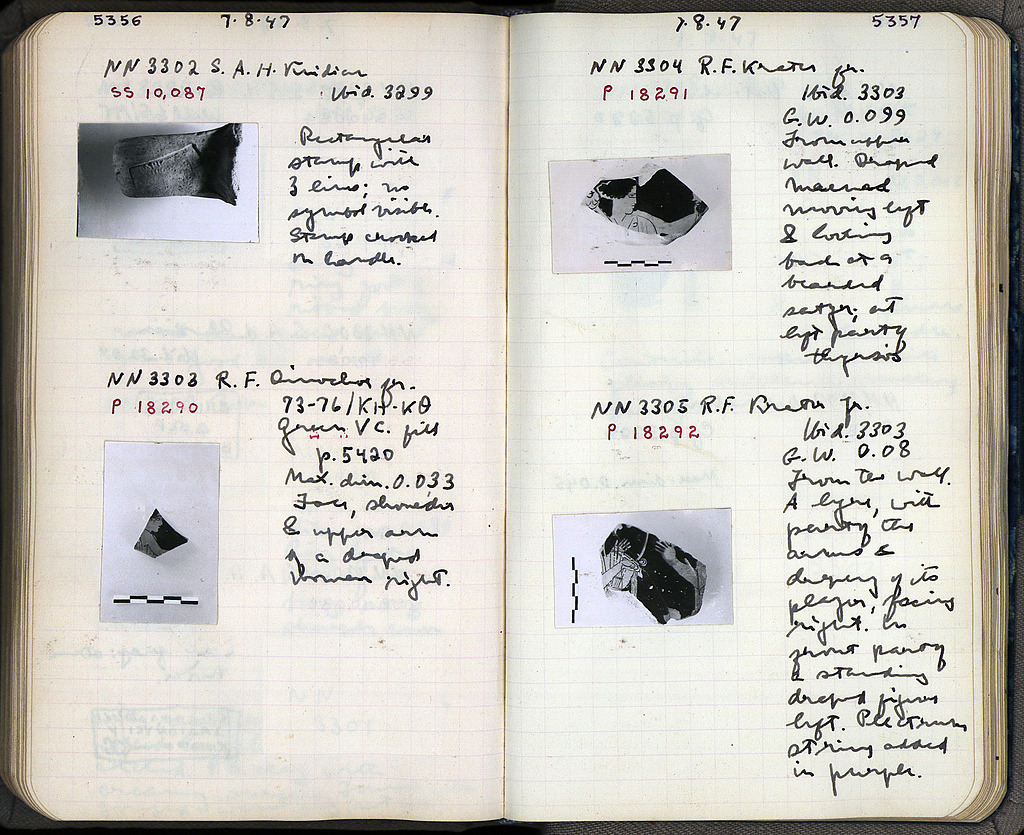 5356 7·8·47
NN 3302 S. A. H.
SS 10,087 Ibid. 3299
Rectangular
stamp with
3 lines; no
symbol visible.
Stamp crooked
on handle.
NN 3303 R. F. Oinochoe fr.
P 18290 73-76/KH-KΘ
Green V C. fill
p. 5420
Max. dim. 0.033
Face, shoulder
& upper arm
of a draped
woman right.
7·8·47 5357
NN 3304 R.F. Krater fr.
P 18291 Ibid. 3303
G.W. 0.099
From upper
wall. Draped
maenad
moving left
& looking
back at a
bearded
satyr; at
left part of
thyrsos
NN 3305 R.F. Krater fr.
P 18292 Ibid. 3303
G.W. 0.08
From the wall.
A lyre, with
part of the
arms &
drapery of its
player, facing
right. In
front part of
a standing
draped figure
left. Plectrum
string added
in purple.